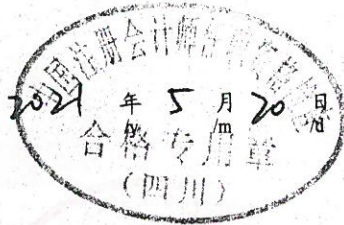 中国注册会计师任职资格检查
2021 年 5 月 20 日
/y /m /d
合格专用章
（四川）